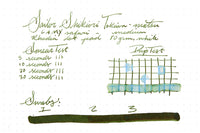 Sailor Shikiori Tokiwa-matsu
Lamy Safari medium
Rhodia dot pad 80 gsm, white
Smear Test
Drip Test
5 seconds
10 seconds
20 seconds
30 seconds
Swab:
1 2 3